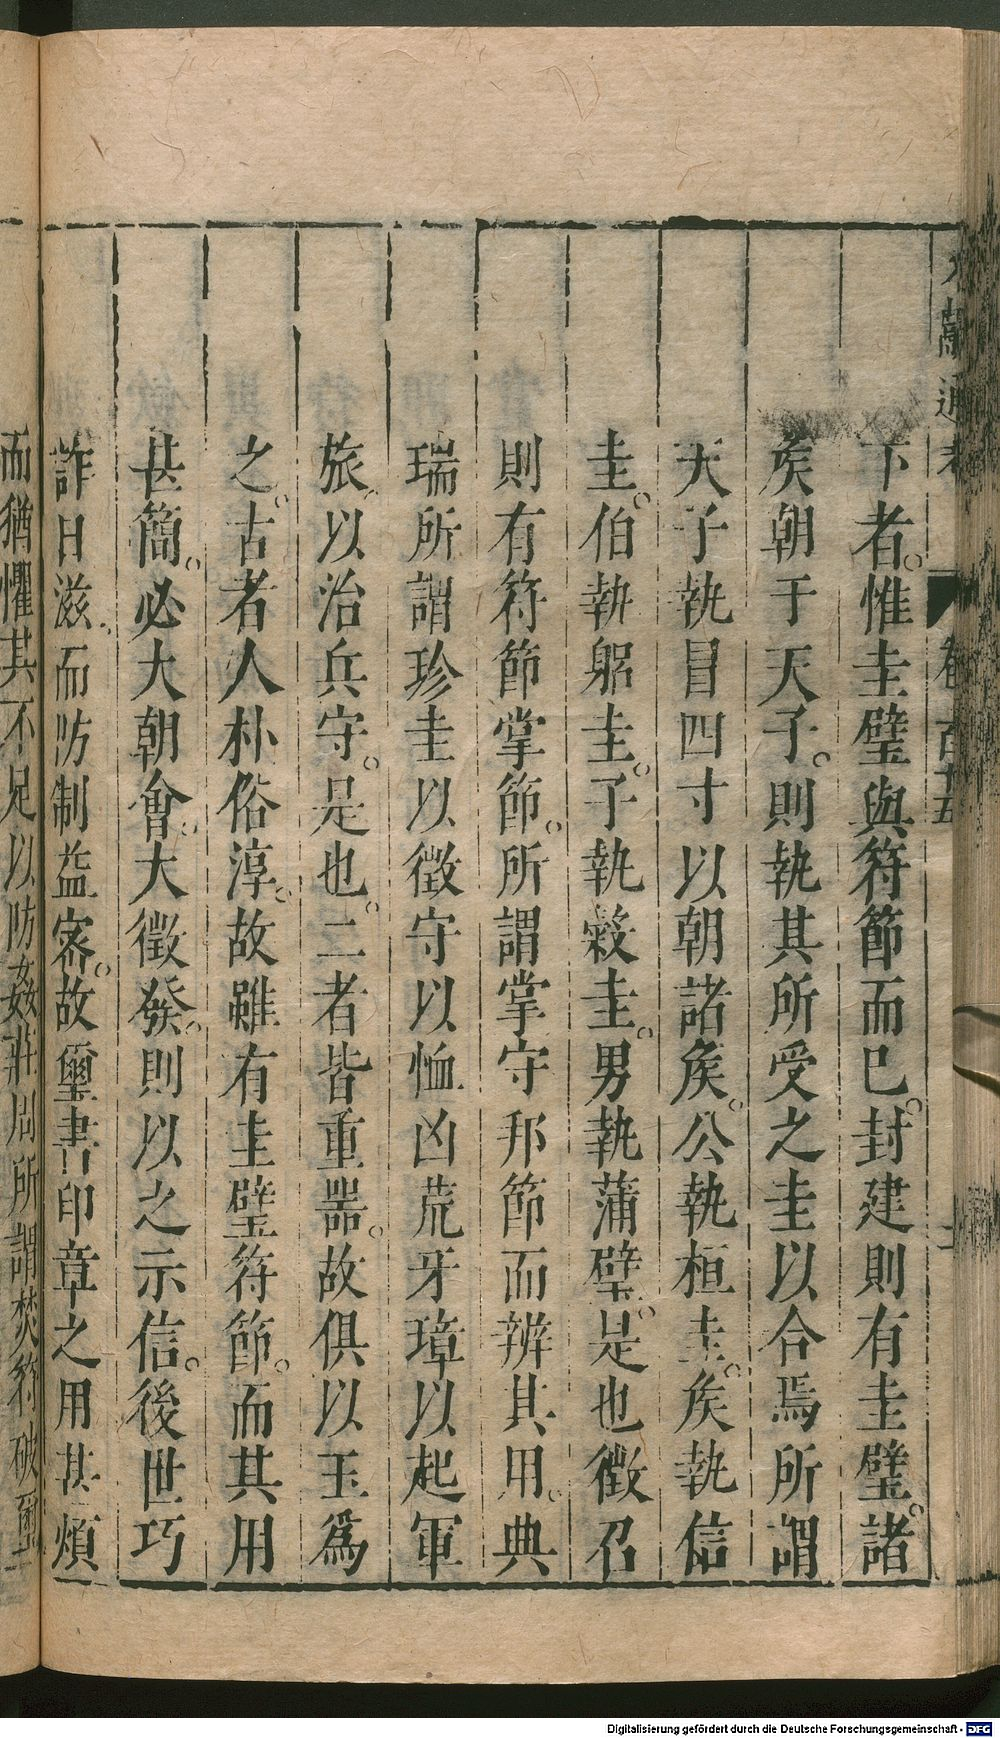 文獻通考 卷百十五
下者惟圭璧與符節而已封建則有圭璧諸
矦朝于天子則執其所受之圭以合焉所謂
天子執冒四寸以朝諸矦公執桓圭矦執信
圭伯執躬圭子執穀圭男執蒲璧是也徵召
則有符節掌節所謂掌守邦節而辨其用典
瑞所謂珍圭以徵守以恤凶荒牙璋以起軍
旅以治兵守是也二者皆重器故俱以玉爲
之古者人朴俗淳故雖有圭璧符節而其用
甚簡必大朝會大徵發則以之示信後世巧
詐日滋而防制益密故璽書印章之用甚煩
而猶懼其不足以防姦莊周所謂焚符破璽
Digitalisierung gefördert durch die Deutsche Forschungsgemeinschaft - DFG